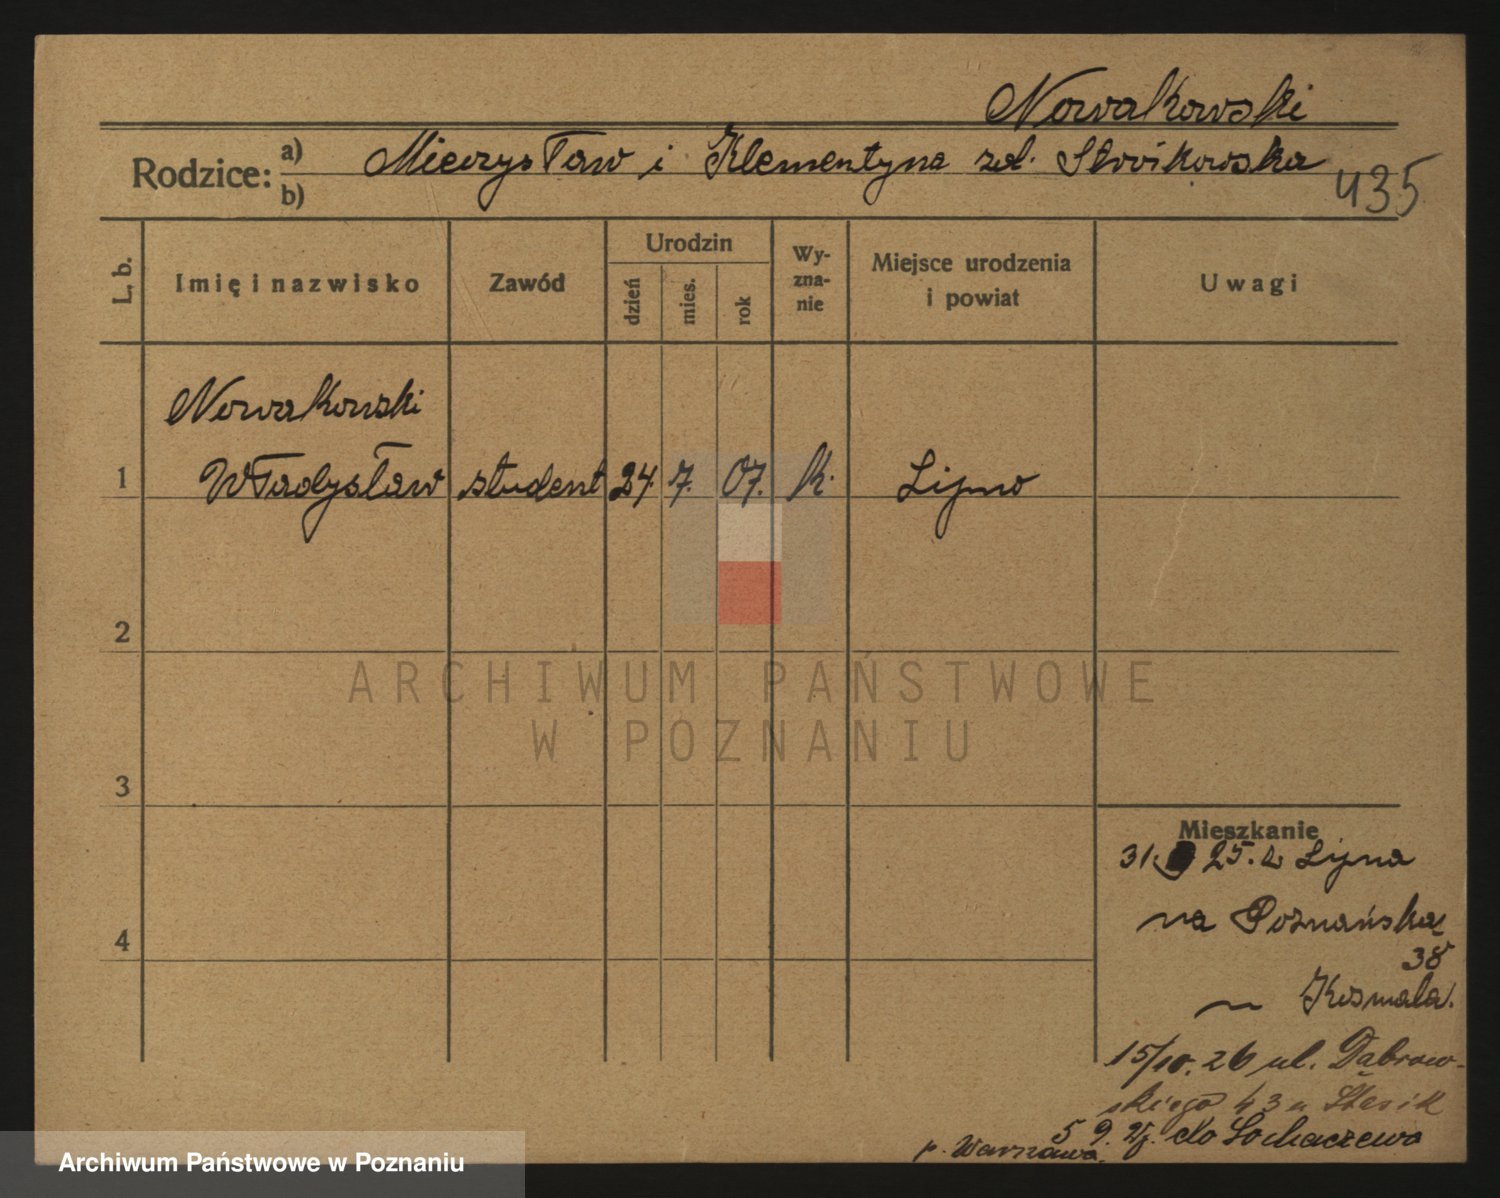 Nowakowski
Rodzice: a) b)
Mieczysław i Klementyna zd.
435
L. b.
Imię i nazwisko
Zawód
Urodzin
dzień
mies.
rok
Wy-
zna-
nie
Miejsce urodzenia
i powiat
Uwagi
Nowakowski
1 Władysław student 24. 7. 07. k. Lipno
2
3
4
Mieszkanie
31. 25. z Lipna
na Poznańska
38
Kosmala.
15/10. 26 ul. Dąbrow-
skiego 43 u Stasik
5 9. do Sochaczewa
p. Warszawa.
ARCHIWUM PAŃSTWOWE
W POZNANIU
Archiwum Państwowe w Poznaniu